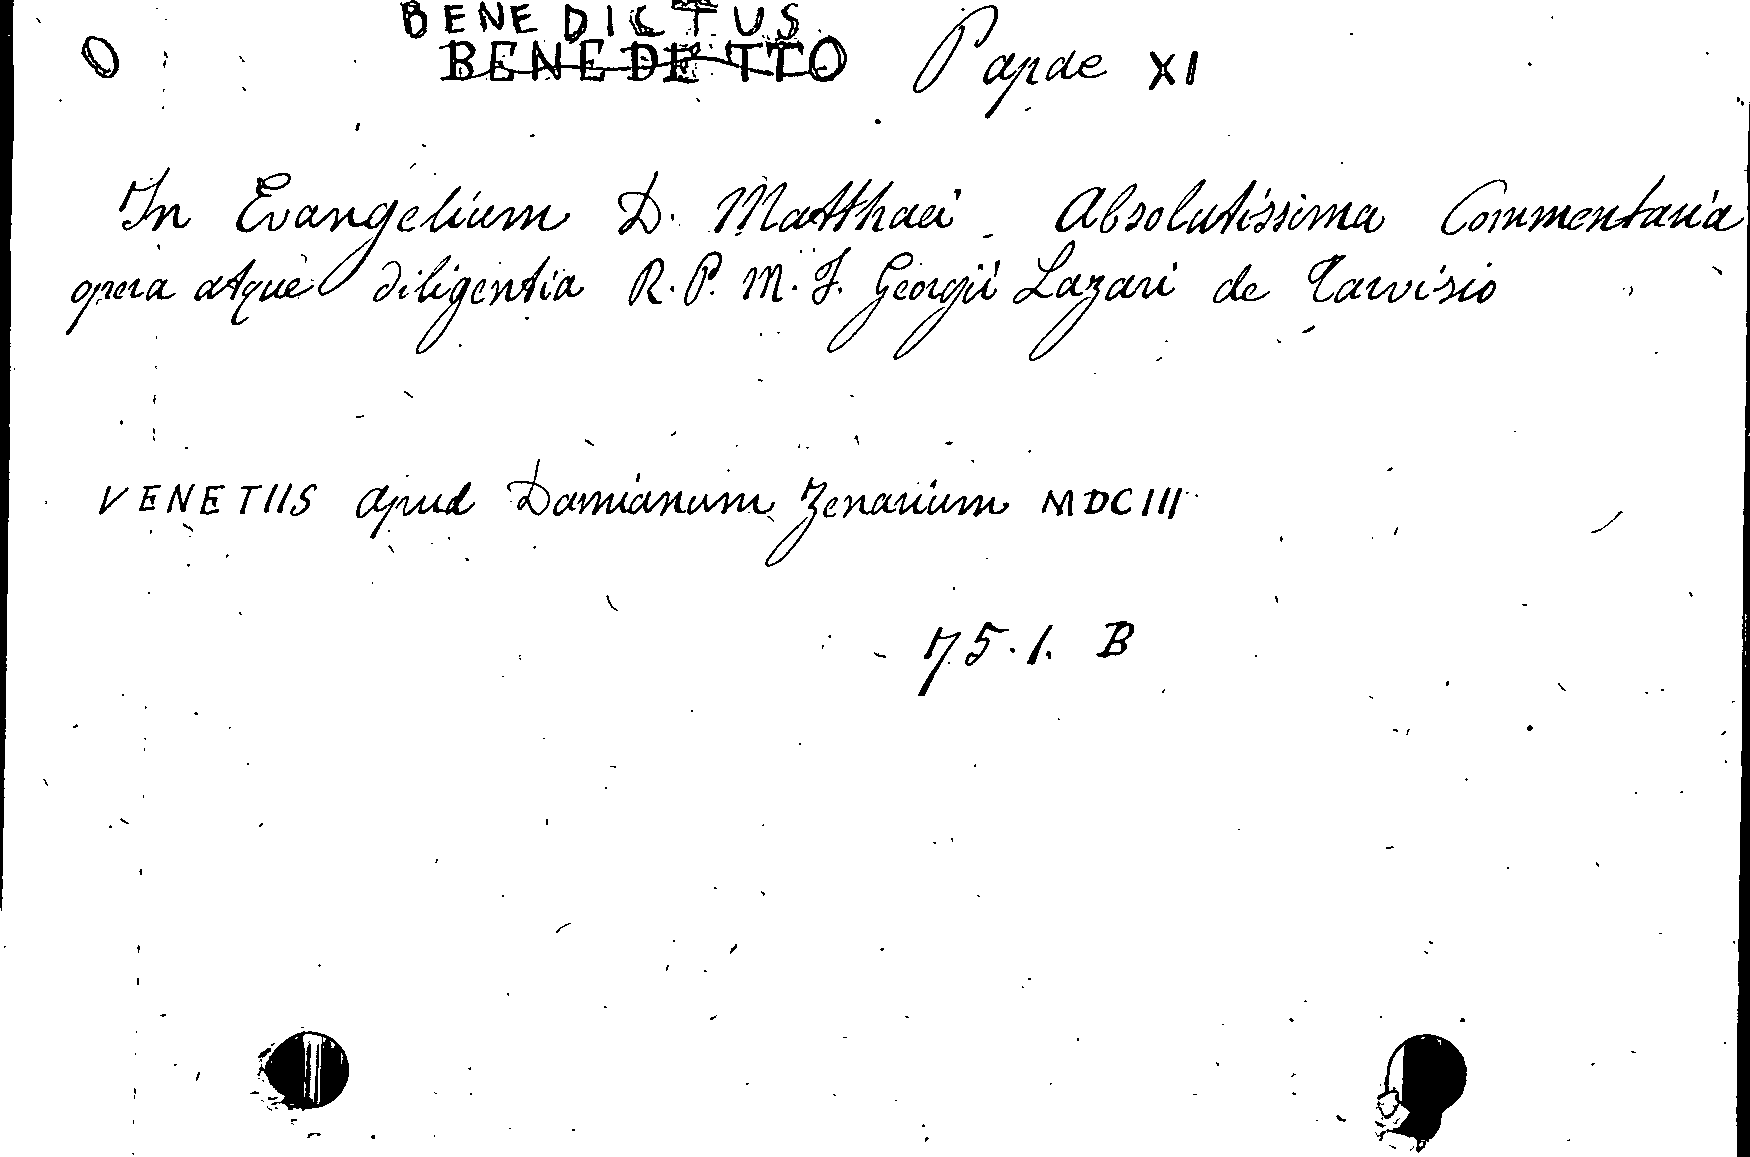 BENEDICTUS
0 BENEDETTO Papae XI
In Evangelium D. Matthaei. Absolutissima Commentaria
opera atque diligentia R. P. M. F. Georgii Lazari de Tarvisio
VENETIIS apud Damianum Zenarium MDCIII
75.1. B